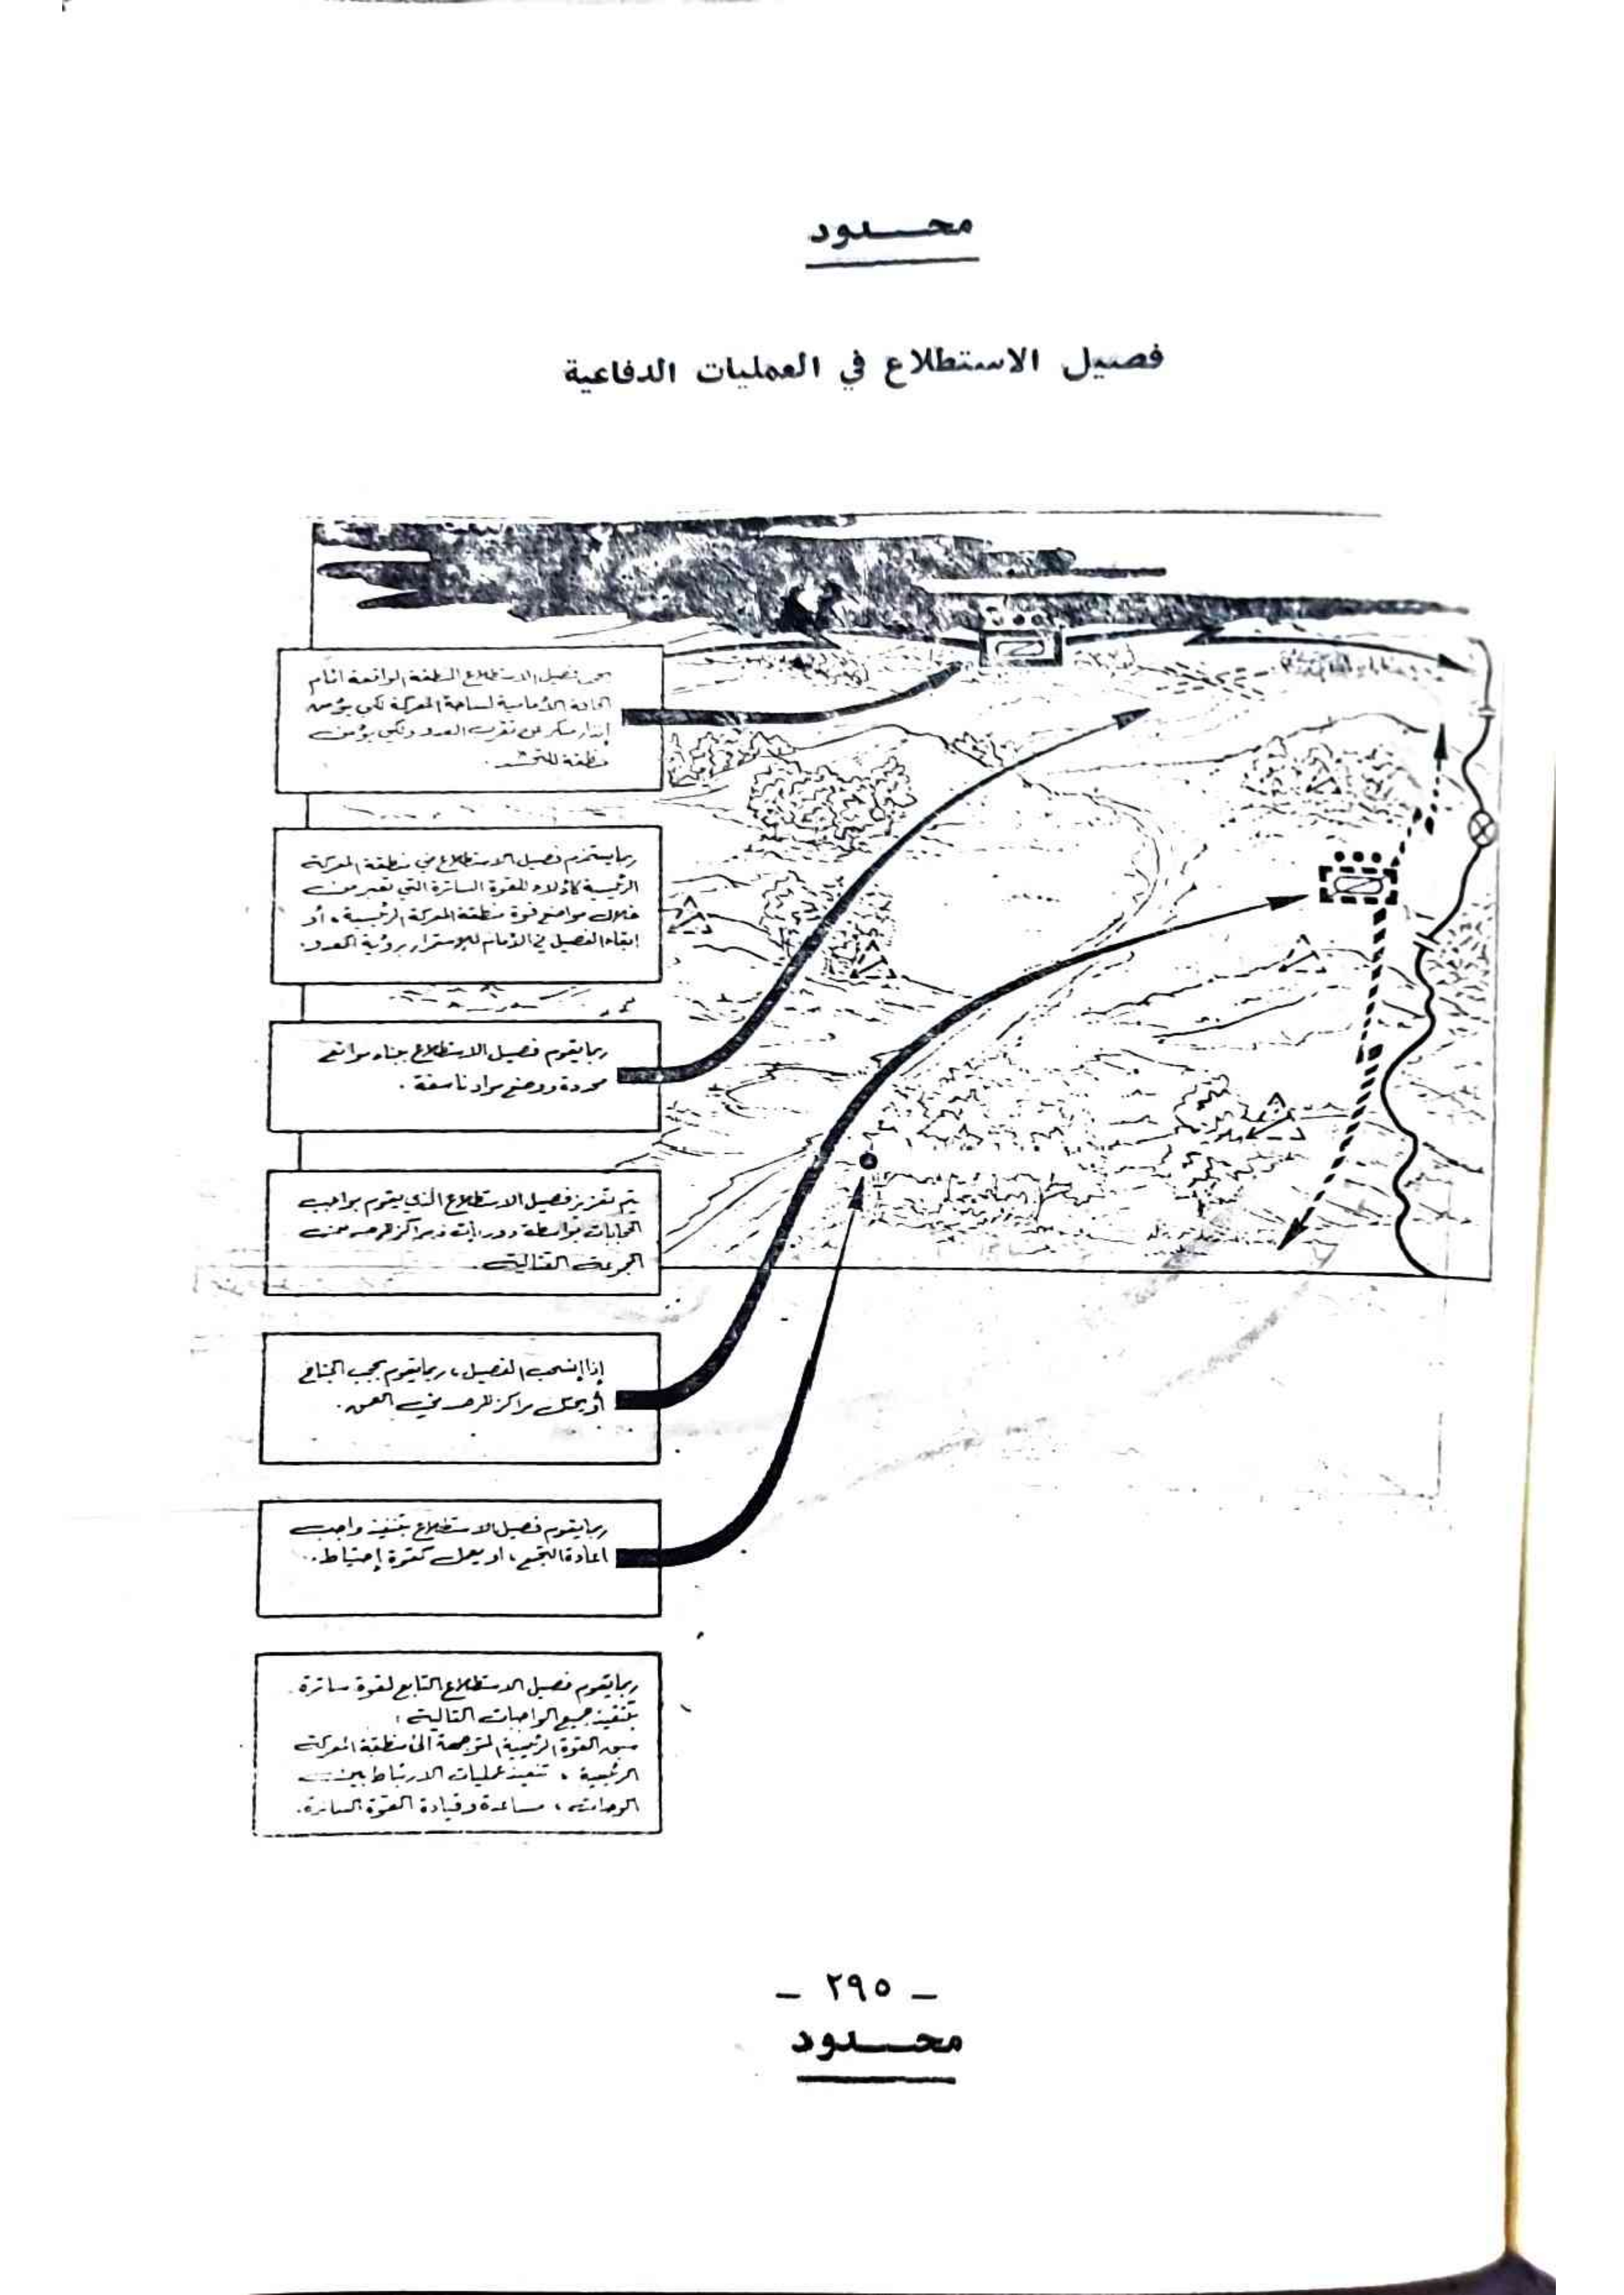 محــدود
فصيل الاستطلاع في العمليات الدفاعية
فصيل الاستطلاع المنطقة الواقعة امام
الحافة الأمامية لساحة المعركة لكي يؤمن
إنذار مبكر عن تقرب العدو ولكي يؤمن
منطقة للتحشد.
ربما يستخدم فصيل الاستطلاع في منطقة المعركة
الرئيسية كأدلاء للقوة الساترة التي تعبر من
خلال مواضع قوة منطقة المعركة الرئيسية، أو
ابقاء الفصيل في الأمام للإستمرار برؤية العدو.
ربما يقوم فصيل الاستطلاع بناء موانع
محدودة ووضع مواد ناسفة.
يتم تعزيز فصيل الاستطلاع الذي يقوم بواجب
الحجابات بواسطة دوريات ومراكز للرصد من
المجموعة القتالية.
إذا إنسحب الفصيل، ربما يقوم بحجب الجناح
أو يحتل مراكز للرصد في العمق.
ربما يقوم فصيل الاستطلاع بتنفيذ واجب
اعادة التجمع، او يعمل كقوة إحتياط.
ربما يقوم فصيل الاستطلاع التابع لقوة ساترة
بتنفيذ جميع الواجبات التالية:
القوة الرئيسية المتوجهة الى منطقة المعركة
الرئيسية، تنفيذ عمليات الارتباط بين
الوحدات، مساعدة وقيادة القوة الساترة.
– ٢٩٥ –
محــدود